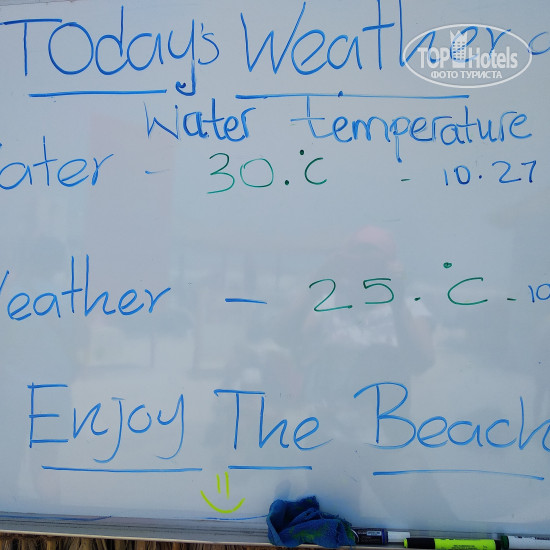 TODay's Weather
Water temperature
ater - 30.°C - 10.27
eather - 25.°C - 10
Enjoy The Beach
TOP Hotels
ФОТО ТУРИСТА